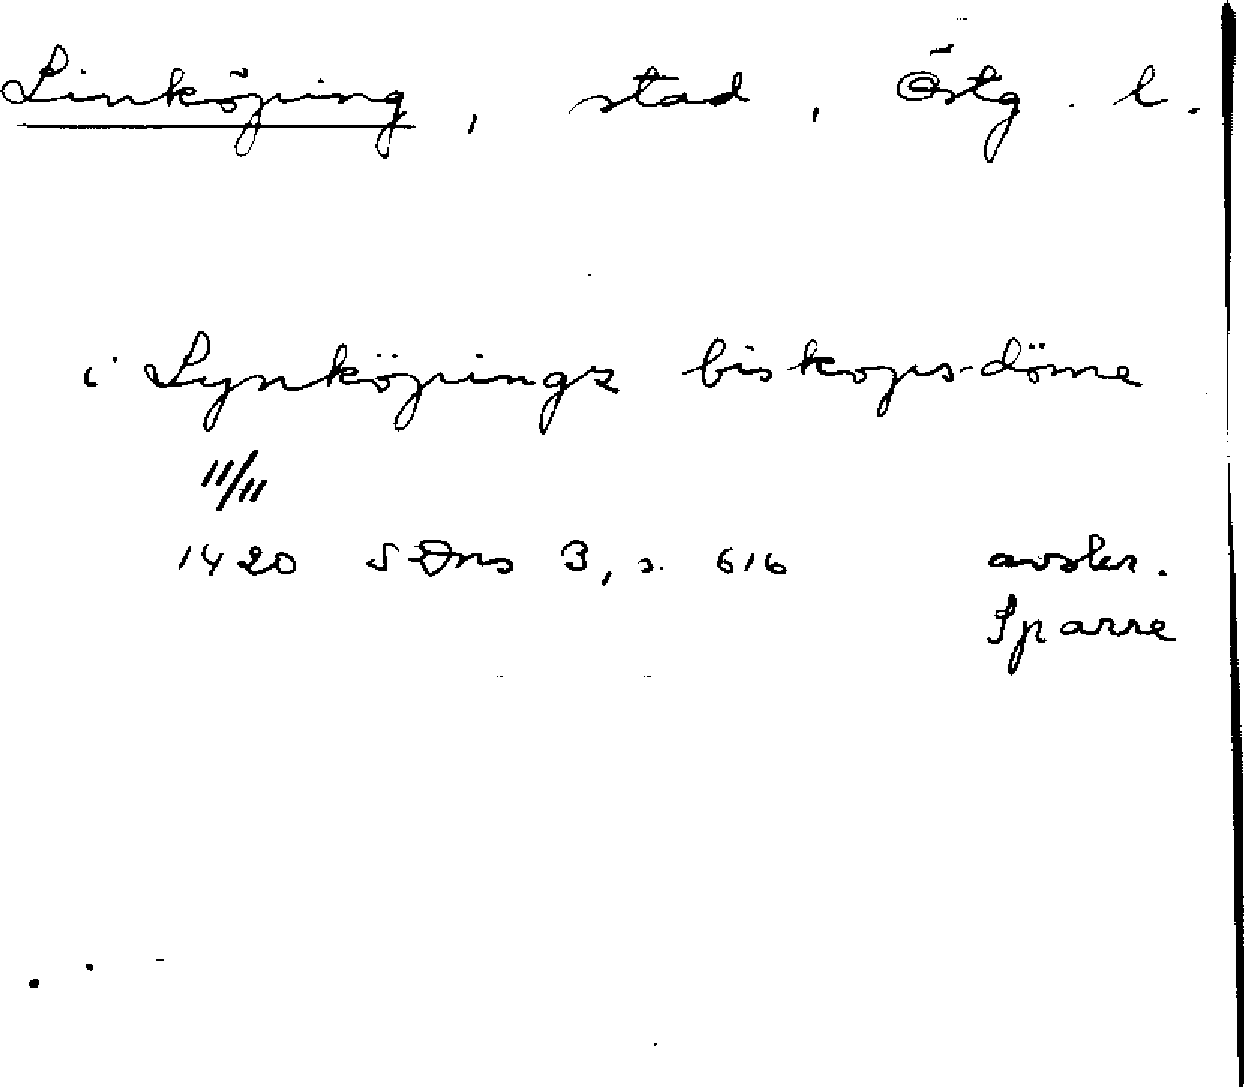 Linköping, stad, Östg. l.
i Lynköpingz biskops-döme
11/11
1420 SDns 3, s. 616 avskr.
Sparre